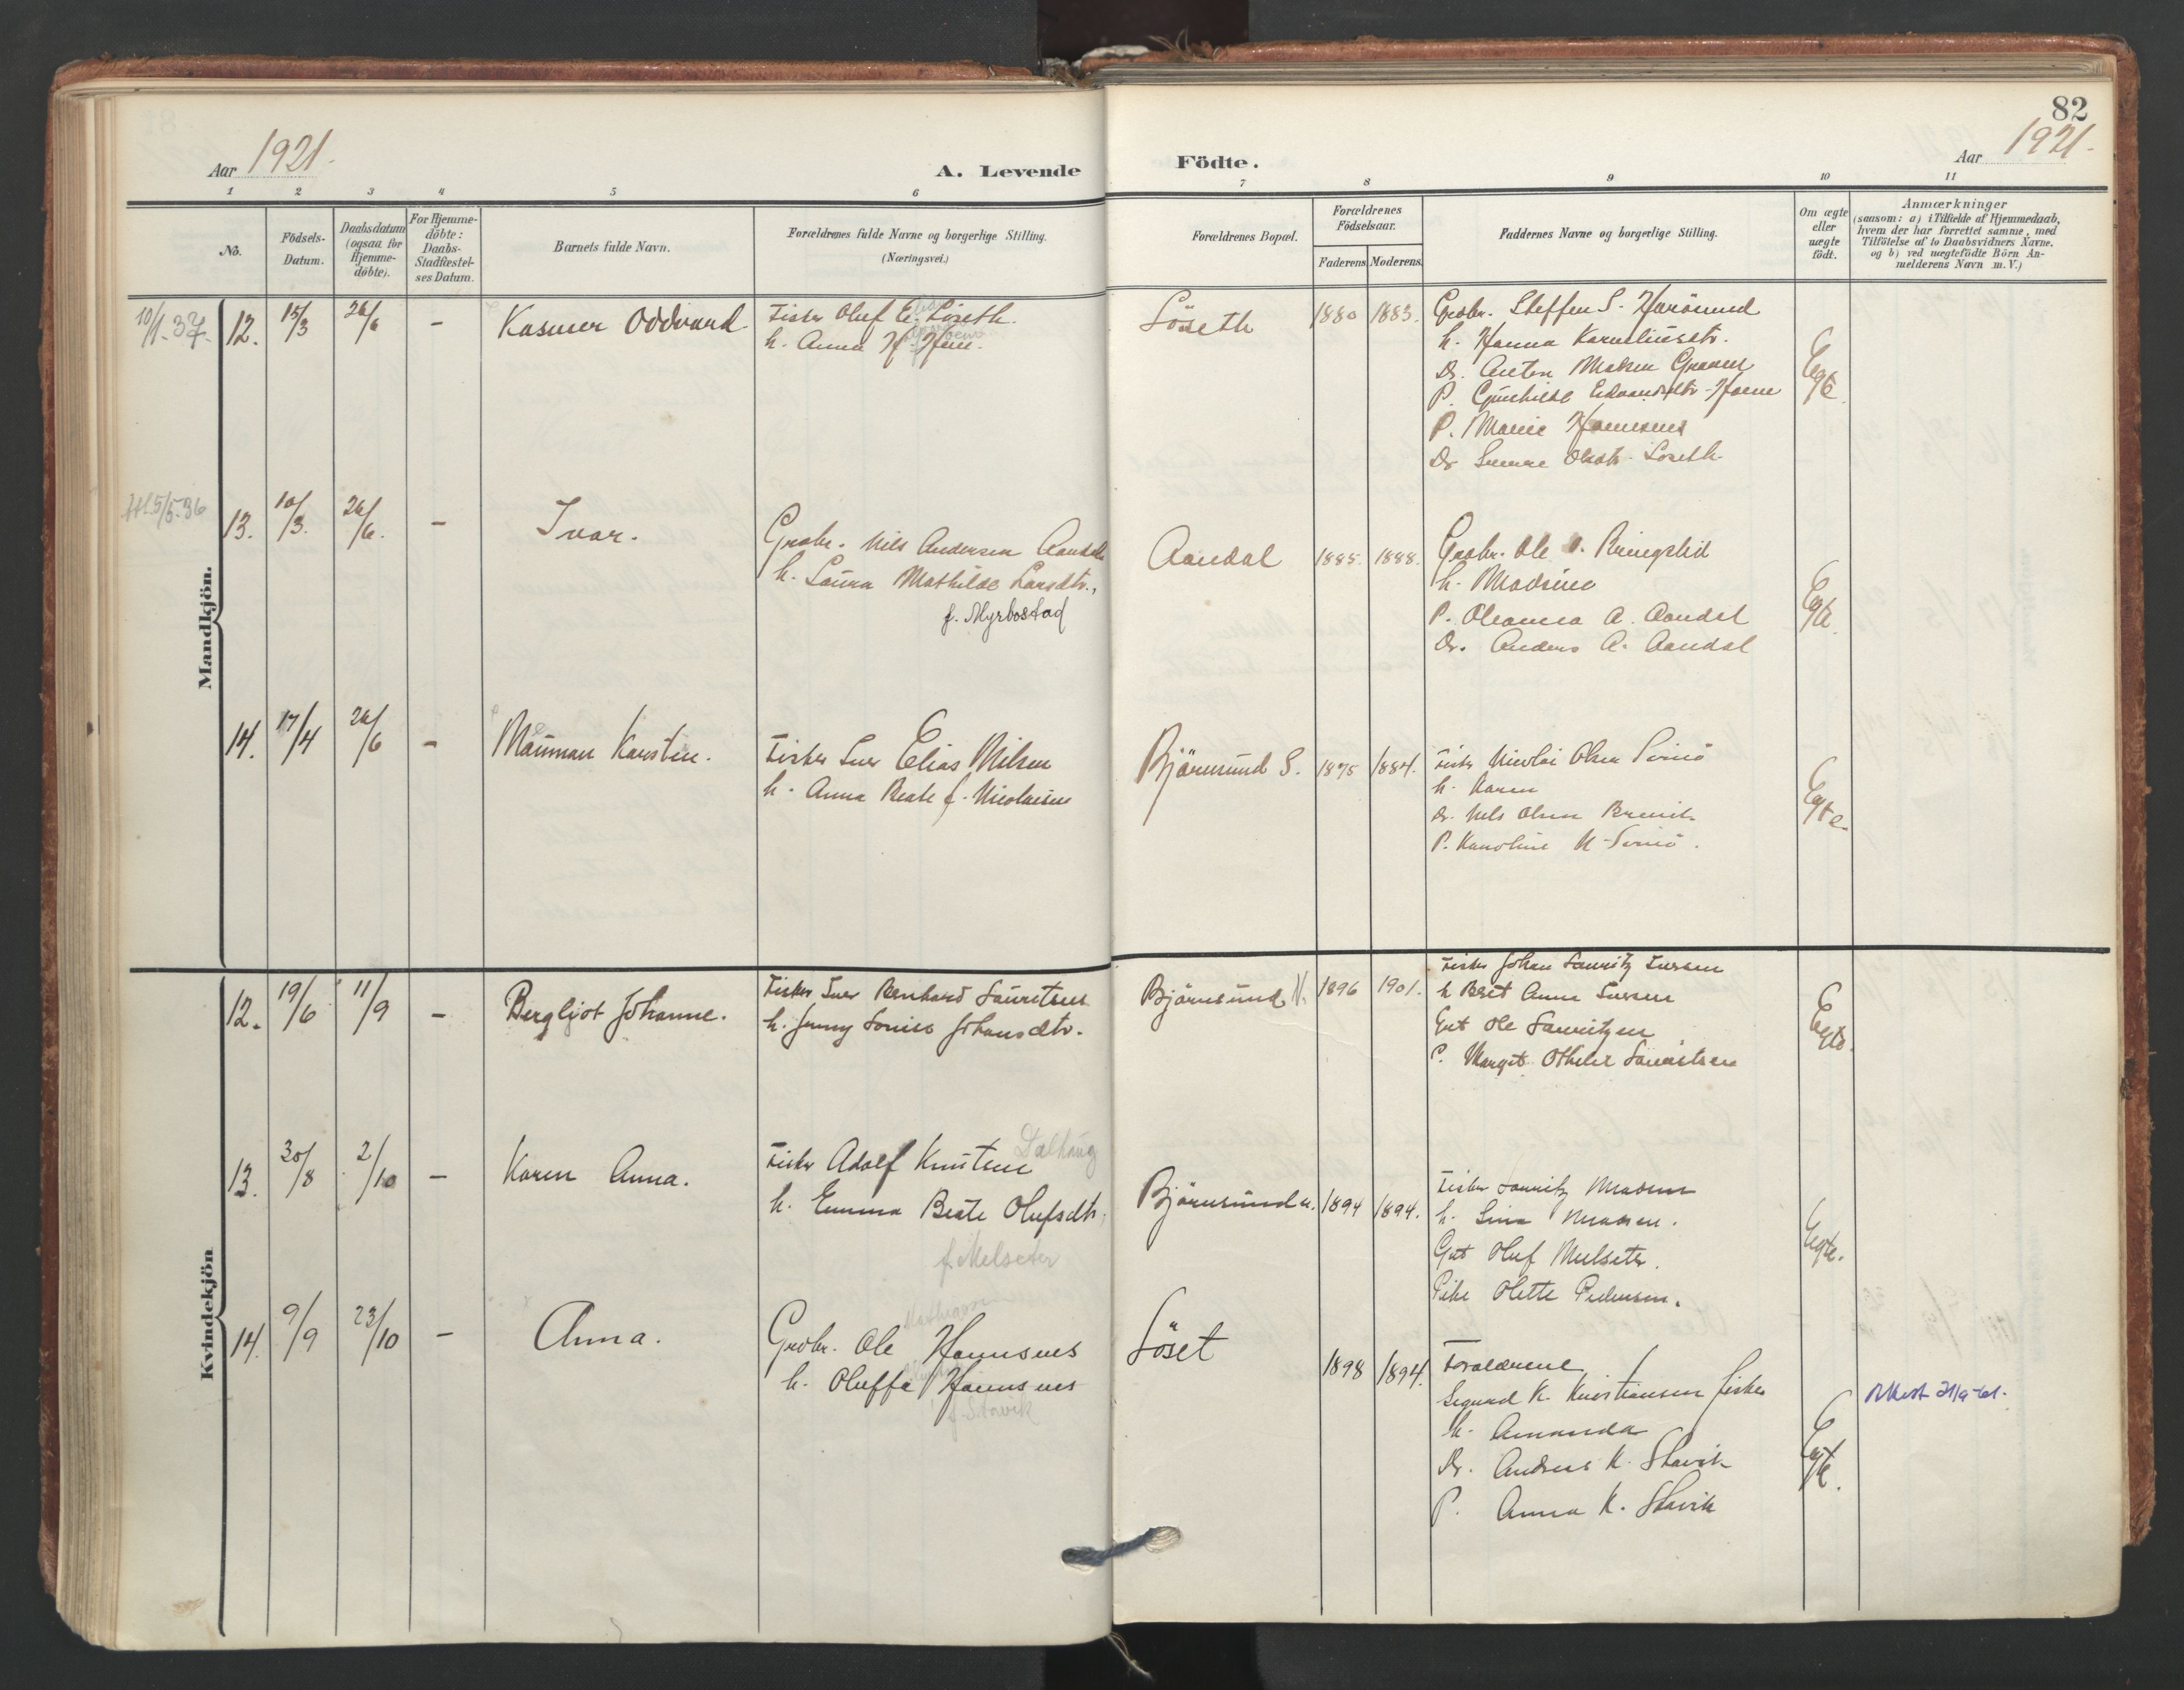 82
Aar 1921.
A. Levende
Födte.
Aar 1921.
1 2 3 4 5 6 7 8 9 10 11
No.
Födsels-
Datum.
Daabsdatum
(ogsaa for
Hjemme-
döbte).
For Hjemme-
döbte:
Daabs-
Stadfæstel-
ses Datum.
Barnets fulde Navn.
Forældrenes fulde Navne og borgerlige Stilling.
(Næringsvei.)
Forældrenes Bopæl.
Forældrenes
Födselsaar.
Faderens. Moderens.
Faddernes Navne og borgerlige Stilling.
Om ægte
eller
uægte
födt.
Anmærkninger
(saasom: a) i Tilfælde af Hjemmedaab,
hvem der har forrettet samme, med
Tilföielse af to Daabsvidners Navne.
og b) ved uægtefödte Börn An-
melderens Navn m. V.)
Mandkjön.
10/1.37. 12. 15/3 26/6 - Kasmer Oddvard
Fisker Oluf E. Löseth.
h. Anna H.
Löseth
1880 1883.
Grobr. Steffen S. Harösund
h. Hanna Korneliusdtr.
Dr. Anton Madsen
P. Gunhilde Edvardsdtr.
P. Marie
Dr Olsdtr. Löseth
Egte
5/5-36 13. 10/3. 26/6. - Ivar.
Grobr. Nils Andersen Aandal
h. Laura Mathilde Larsdtr.,
f. Myrbostad
Aandal
1885. 1888.
Grobr. Ole Ringstid
h. Madsine
P. Oleanna A. Aandal
Dr. Anders A. Aandal
Egte.
14. 17/4 26/6 - Karsten.
Fisker Iver Elias Nilsen
h. Anna Beate f. Nicolaisen
Björnsund S.
1875 1884.
Fisker Nicolai Olsen
h. Karen
Dr. Nils Olsen
P. Karoline N.
Egte.
Kvindekjön
12. 19/6 11/9 - Bergljot Johanne.
Fisker Iver Bernhard Lauritsen
h. Jenny Louise Johansdtr.
Björnsund N.
1896 1901.
Fisker Johan Lauritz Iversen
h Beret Anna Iversen
Gut Ole Lauritzen
P. Margit Othelie Lauritsen
Egte.
13. 30/8 2/10 - Karen Anna.
Dalhaug
Fisker Adolf Knutsen
h. Emma Beate Olufsdtr.
f. Melseter
Björnsund n.
1894 1894.
Fisker Lauritz Madsen
h. Lina Madsen.
Gut Oluf Mulseter.
Pike Olette Pedersen.
Egte.
14. 9/9 23/10 - Anna.
Grobr. Ole Hansnes
h. Oluffa Hansnes
f. Stavik
Löset
1898 1894.
Forældrene
Sigurd K. Kristiansen fisker
h. Amanda
Dr. Andreas K. Stavik
P. Anna K. Stavik
Egte.
Attest 21/9-61.